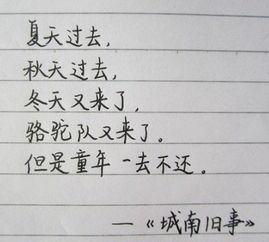 夏天过去，
秋天过去，
冬天又来了，
骆驼队又来了。
但是童年一去不还。
—《城南旧事》